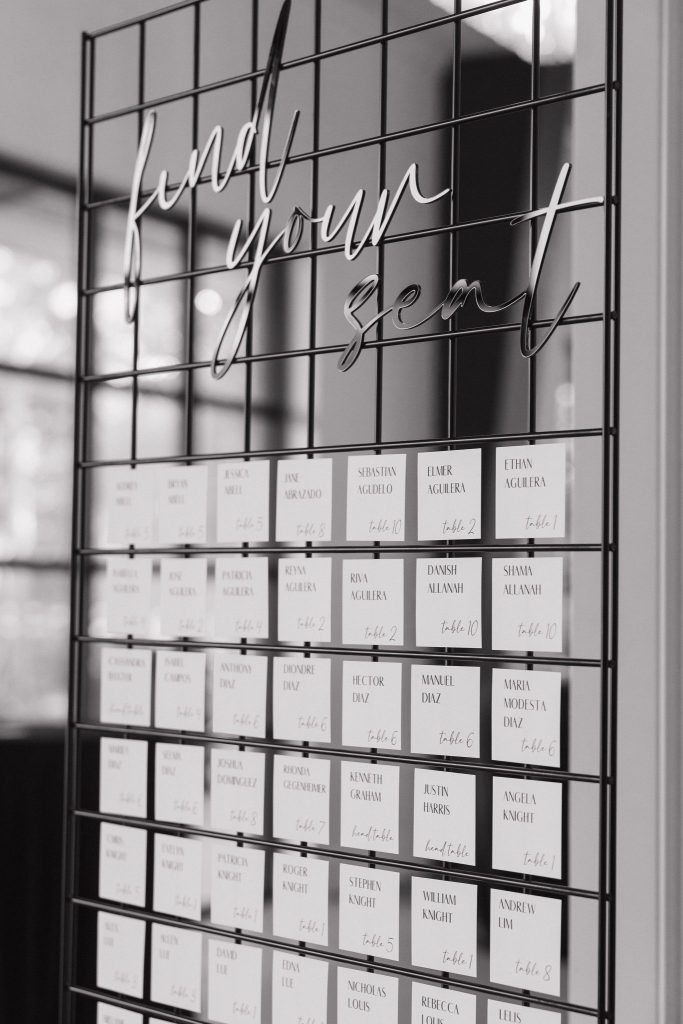 find
your
seat
JESSICA
ABELL
table 5
JANE
ABRAZADO
table 8
SEBASTIAN
AGUDELO
table 10
ELMER
AGUILERA
table 2
ETHAN
AGUILERA
table 1
JOSE
AGUILERA
table 2
PATRICIA
AGUILERA
table 4
REYNA
AGUILERA
table 2
RIVA
AGUILERA
table 2
DANISH
ALLANAH
table 10
SHAMA
ALLANAH
table 10
head table
ISABEL
CAMPOS
table 4
ANTHONY
DIAZ
table 6
DIONDRE
DIAZ
table 6
HECTOR
DIAZ
table 6
MANUEL
DIAZ
table 6
MARIA
MODESTA
DIAZ
table 6
DIAZ
table 6
DIAZ
table 6
JOSHUA
DOMINGUEZ
table 8
RHONDA
GEGENHEIMER
table 7
KENNETH
GRAHAM
head table
JUSTIN
HARRIS
head table
ANGELA
KNIGHT
table 1
CHRIS
KNIGHT
table 5
EVELYN
KNIGHT
table 1
PATRICIA
KNIGHT
table 1
ROGER
KNIGHT
table 1
STEPHEN
KNIGHT
table 5
WILLIAM
KNIGHT
table 1
ANDREW
LIM
table 8
LUE
table 3
LUE
table 3
DAVID
LUE
EDNA
LUE
NICHOLAS
LOUIS
REBECCA
LOUIS
LELIS